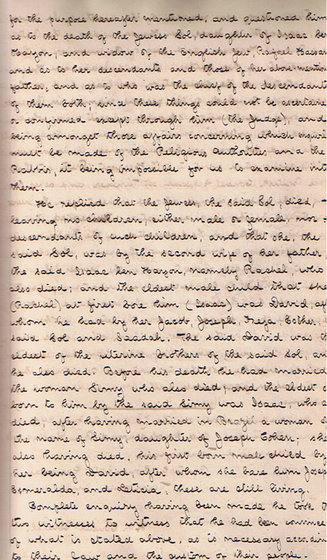 for the purpose hereafter mentioned, and questioned him
as to the death of the Jewess Sol, daughter of Isaac Ben
Hazon, and widow of the English Jew, Rafael Hassan
and as to her descendants and those of her above-mention
father, and as to who was the eldest of the descendants
of them both; since these things could not be ascertaine
or confirmed except through him (the Judge), and
being amongst those affairs concerning which inquir
must be made of the Religious Authorities and the
Rabbis, it being impossible for us to examine into
them.
He replied that the Jewess, the said Sol, died,
leaving no children, either male or female, nor
descendants of such children, and that she, the
said Sol, was by the second wife of her father
the said Isaac Ben Hazon, namely Rachel, who
also died; and the eldest male child that she
(Rachel) at first bore him (Isaac) was David, af
whom he had by her Jacob, Joseph, Freja, Esther,
said Sol and Saadah. The said David was th
eldest of the uterine brothers of the said Sol, an
he also died. Before his death he had married
the woman Simy, who also died; and the eldest
born to him by the said Simy was Isaac, who a
died, after having married in Brazil a woman o
the name of Simy, daughter of Joseph Cohen; she
also having died, his first born male child by
her being David, after whom she bare him Josep
Esmeralda, and Leticia; these are still living.
Complete enquiry having been made he took
two witnesses to witness that he had been
of what is stated above, as is necessary accordin
to their Law and the custom of their people.